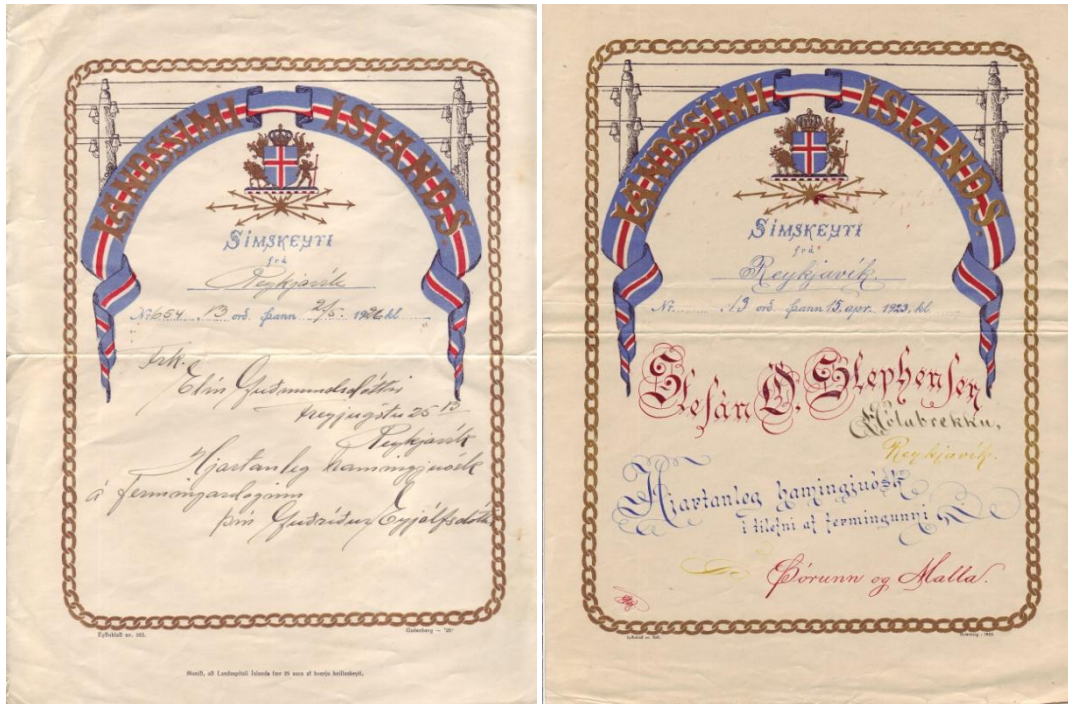 LANDSSÍMI ÍSLANDS
SÍMSKEYTI
frá
Reykjavík
Nr. 654 13 orð. þann 2/5. 1926, kl
Frk.
Elín Guðmundsdóttir
Freyjugötu 25 B
Reykjavík
Hjartanleg hamingjuósk
á fermingardaginn
þín Guðríður Eyjólfsdóttir
Eyðublað nr.
Gutenberg — '25
Munið, að Landsspítali Íslands fær 25 aura af hverju heillaskeyti.
LANDSSÍMI ÍSLANDS
SÍMSKEYTI
frá
Reykjavík.
Nr. 13 orð. þann 15. apr. 1923, kl
Stefán Ó. Stephensen
Hólabrekku,
Reykjavík.
Hjartanleg hamingjuósk
í tilefni af fermingunni
Þórunn og Malla.
Eyðublað nr.